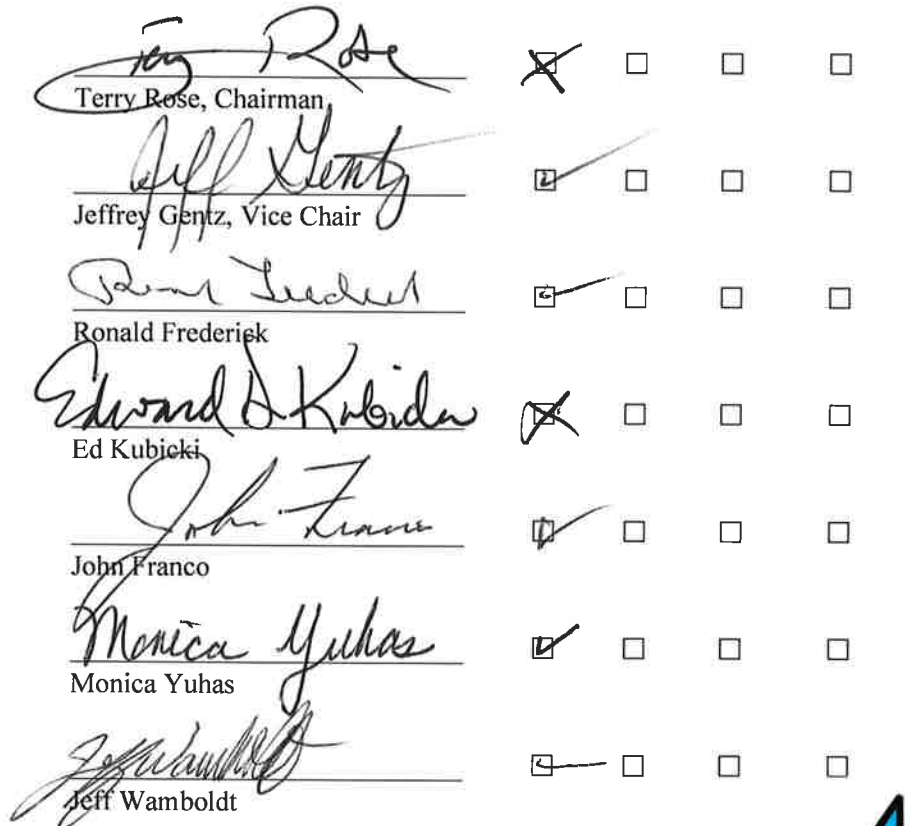 Terry Rose
Terry Rose, Chairman
Jeff Gentz
Jeffrey Gentz, Vice Chair
Ronald Frederick
Edward D Kubicki
Ed Kubicki
John Franco
John Franco
Monica Yuhas
Monica Yuhas
Jeff Wamboldt
Jeff Wamboldt